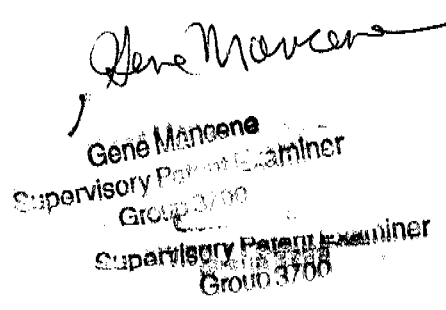 Gene Mancene
Gene Mancene
Supervisory Patent Examiner
Group 3700
Supervisory Patent Examiner
Group 3700